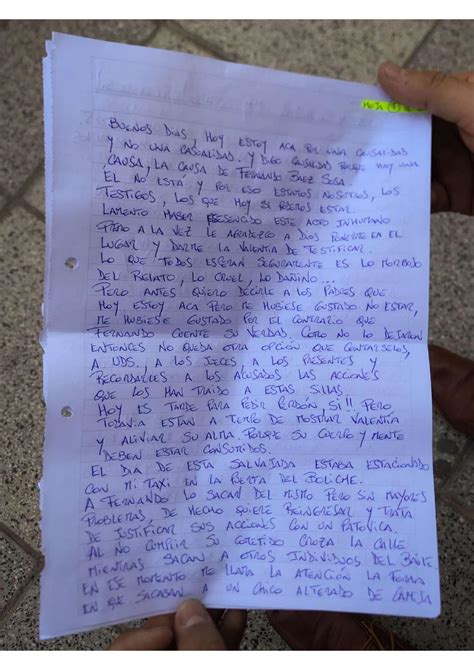 HOJA (1)
BUENOS DIAS, HOY ESTOY ACA POR UNA CAUSALIDAD
Y NO UNA CASUALIDAD. Y DIGO CAUSALIDAD PORQUE HAY UNA
CAUSA, LA CAUSA DE FERNANDO BAEZ SOSA.
EL NO ESTA Y POR ESO ESTAMOS NOSOTROS, LOS
TESTIGOS, LOS QUE HOY SI PODEMOS ESTAR.
LAMENTO HABER PRESENCIADO ESTE ACTO INHUMANO
PERO A LA VEZ LE AGRADEZCO A DIOS PONERME EN EL
LUGAR Y DARME LA VALENTIA DE TESTIFICAR.
LO QUE TODOS ESPERAN SEGURAMENTE ES LO MORBOSO
DEL RELATO, LO CRUEL, LO DAÑINO...
PERO ANTES QUIERO DECIRLE A LOS PADRES QUE
HOY ESTOY ACA PERO ME HUBIESE GUSTADO NO ESTAR,
ME HUBIESE GUSTADO POR EL CONTRARIO QUE
FERNANDO CUENTE SU VERDAD. COMO NO LO DEJARON
ENTONCES NO QUEDA OTRA OPCIÓN QUE CONTARSELOS,
A UDS., A LOS JUECES, A LOS PRESENTES Y
RECORDARLES A LOS ACUSADOS LAS ACCIONES
QUE LOS HAN TRAIDO A ESTAS SILLAS.
HOY ES TARDE PARA PEDIR PERDÓN, SI!! PERO
TODAVIA ESTAN A TIEMPO DE MOSTRAR VALENTIA
Y ALIVIAR SU ALMA. PORQUE SU CUERPO Y MENTE
DEBEN ESTAR CONSUMIDOS.
EL DIA DE ESTA SALVAJADA ESTABA ESTACIONADO
CON MI TAXI EN LA PUERTA DEL BOLICHE.
A FERNANDO LO SACAN DEL MISMO PERO SIN MAYORES
PROBLEMAS, DE HECHO QUIERE REINGRESAR Y TRATA
DE JUSTIFICAR SUS ACCIONES CON UN PATOVICA.
AL NO CUMPLIR SU COMETIDO CRUZA LA CALLE
MIENTRAS SACAN A OTROS INDIVIDUOS DEL BAILE.
EN ESE MOMENTO ME LLAMA LA ATENCIÓN LA FORMA
EN QUE SACABAN A UN CHICO ALTERADO DE CAMISA